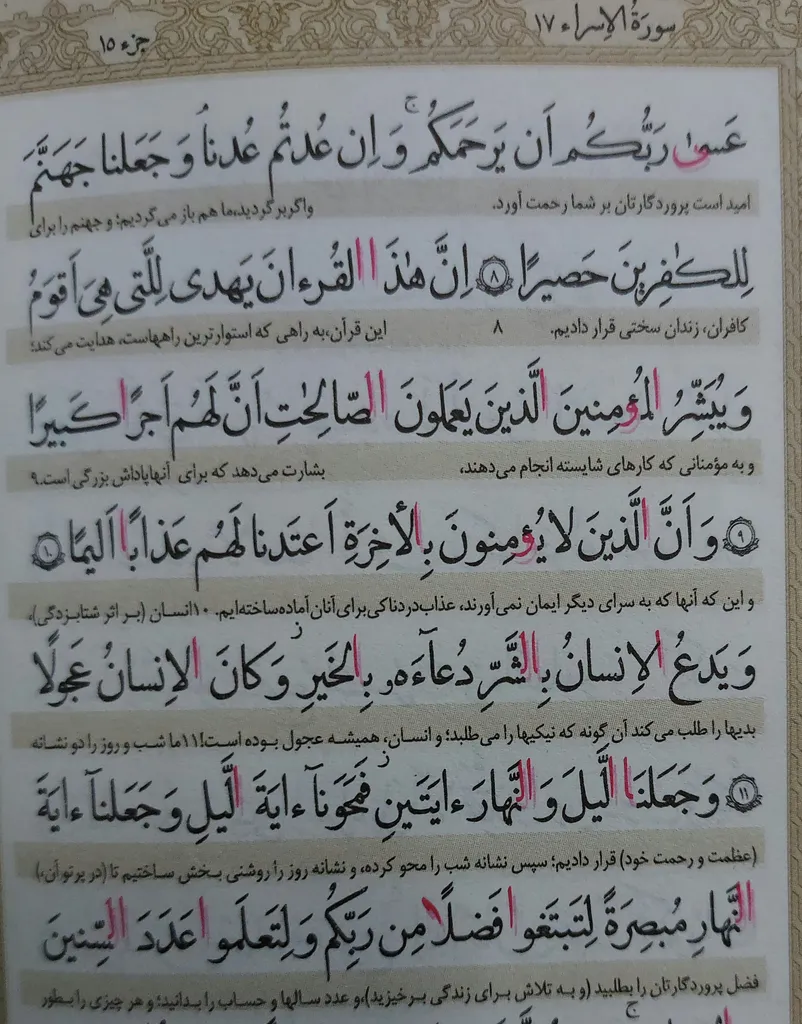 سورة الإسراء ١٧
جزء ١٥
عَسىٰ رَبُّكُم اَن يَرحَمَكُم ۚ وَ اِن عُدتُم عُدنا ۘ وَ جَعَلنا جَهَنَّمَ
امید است پروردگارتان بر شما رحمت آورد. واگر برگردید، ما هم باز می‌گردیم؛ و جهنم را برای
لِلكـٰفِرينَ حَصيرًا ﴿٨﴾ اِنَّ هـٰذَا القُرءانَ يَهدى لِلَّتى هِىَ اَقوَمُ
کافران، زندان سختی قرار دادیم. ۸ این قرآن، به راهی که استوارترین راههاست، هدایت می‌کند؛
وَ يُبَشِّرُ المُؤمِنينَ الَّذينَ يَعمَلونَ الصّالِحـٰتِ اَنَّ لَهُم اَجرًا كَبيرًا
و به مؤمنانی که کارهای شایسته انجام می‌دهند، بشارت می‌دهد که برای آنها پاداش بزرگی است. ۹
﴿٩﴾ وَ اَنَّ الَّذينَ لا يُؤمِنونَ بِالأخِرَةِ اَعتَدنا لَهُم عَذابًا اَليمًا ﴿١٠﴾
و این که آنها که به سرای دیگر ایمان نمی‌آورند، عذاب دردناکی برای آنان آماده ساخته‌ایم. ۱۰ انسان (بر اثر شتابزدگی)،
وَ يَدعُ الاِنسانُ بِالشَّرِّ دُعآءَهو بِالخَيرِ ز وَ كانَ الاِنسانُ عَجولًا
بدیها را طلب می‌کند آن گونه که نیکیها را می‌طلبد؛ و انسان، همیشه عجول بوده است! ۱۱ ما شب و روز را دو نشانه
﴿١١﴾ وَ جَعَلنَا الَّيلَ وَ النَّهارَ ءايَتَينِ ز فَمَحَونآ ءايَةَ الَّيلِ وَ جَعَلنآ ءايَةَ
(عظمت و رحمت خود) قرار دادیم؛ سپس نشانه شب را محو کرده، و نشانه روز را روشنی بخش ساختیم تا (در پرتو آن،)
النَّهارِ مُبصِرَةً لِتَبتَغوا فَضلًا مِن رَبِّكُم وَ لِتَعلَموا عَدَدَ السِّنينَ
فضل پروردگارتان را بطلبید (و به تلاش برای زندگی برخیزید)، و عدد سالها و حساب را بدانید؛ و هر چیزی را بطور